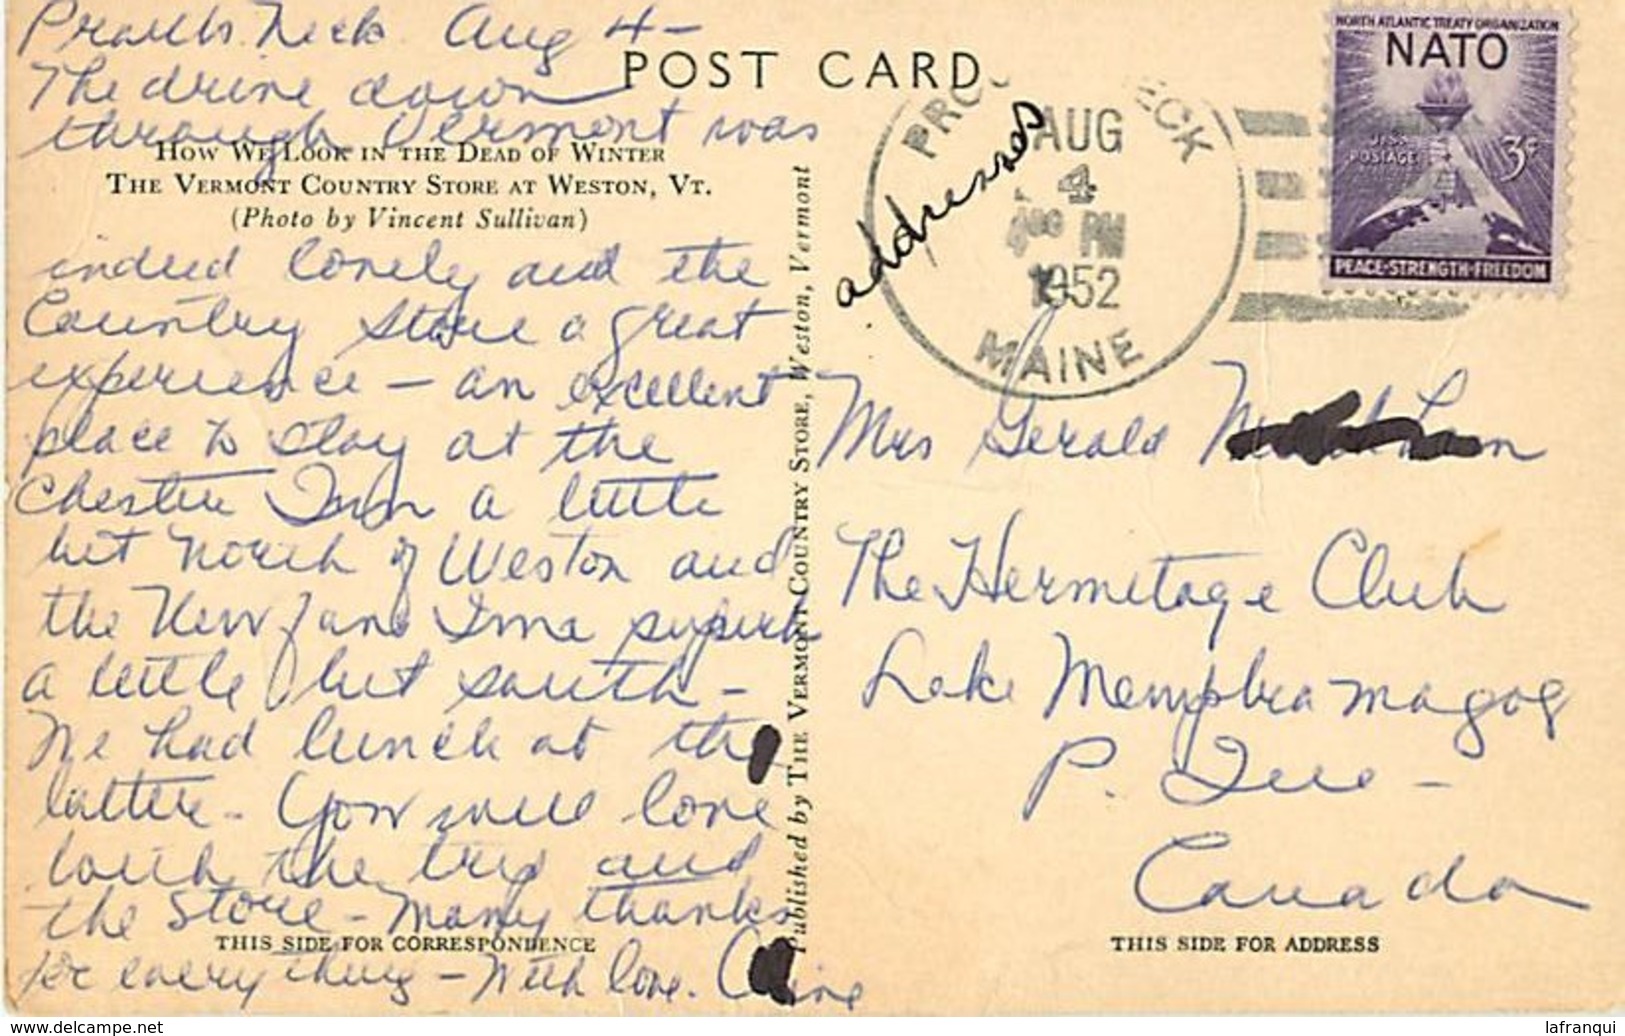 Prouts Neck Aug 4 -
The drive down
through Vermont was
POST CARD
HOW WE LOOK IN THE DEAD OF WINTER
THE VERMONT COUNTRY STORE AT WESTON, VT.
(Photo by Vincent Sullivan)
indeed lovely and the
Country Store a great
experience - an excellent
place to stay at the
Chester Inn a little
bit North of Weston and
the Newfane Inn superb
a little bit south -
We had lunch at the
latter - You will love
both the trip and
the Store - Many thanks
THIS SIDE FOR CORRESPONDENCE
for everything - With love.
Published by THE VERMONT COUNTRY STORE, Weston, Vermont
addresses
AUG
4
PM
1952
MAINE
NORTH ATLANTIC TREATY ORGANIZATION
NATO
U.S.
POSTAGE
3¢
PEACE-STRENGTH-FREEDOM
Mrs Gerald
The Hermitage Club
Lake Memphramagog
P. Que -
Canada
THIS SIDE FOR ADDRESS
lafranqui
www.delcampe.net